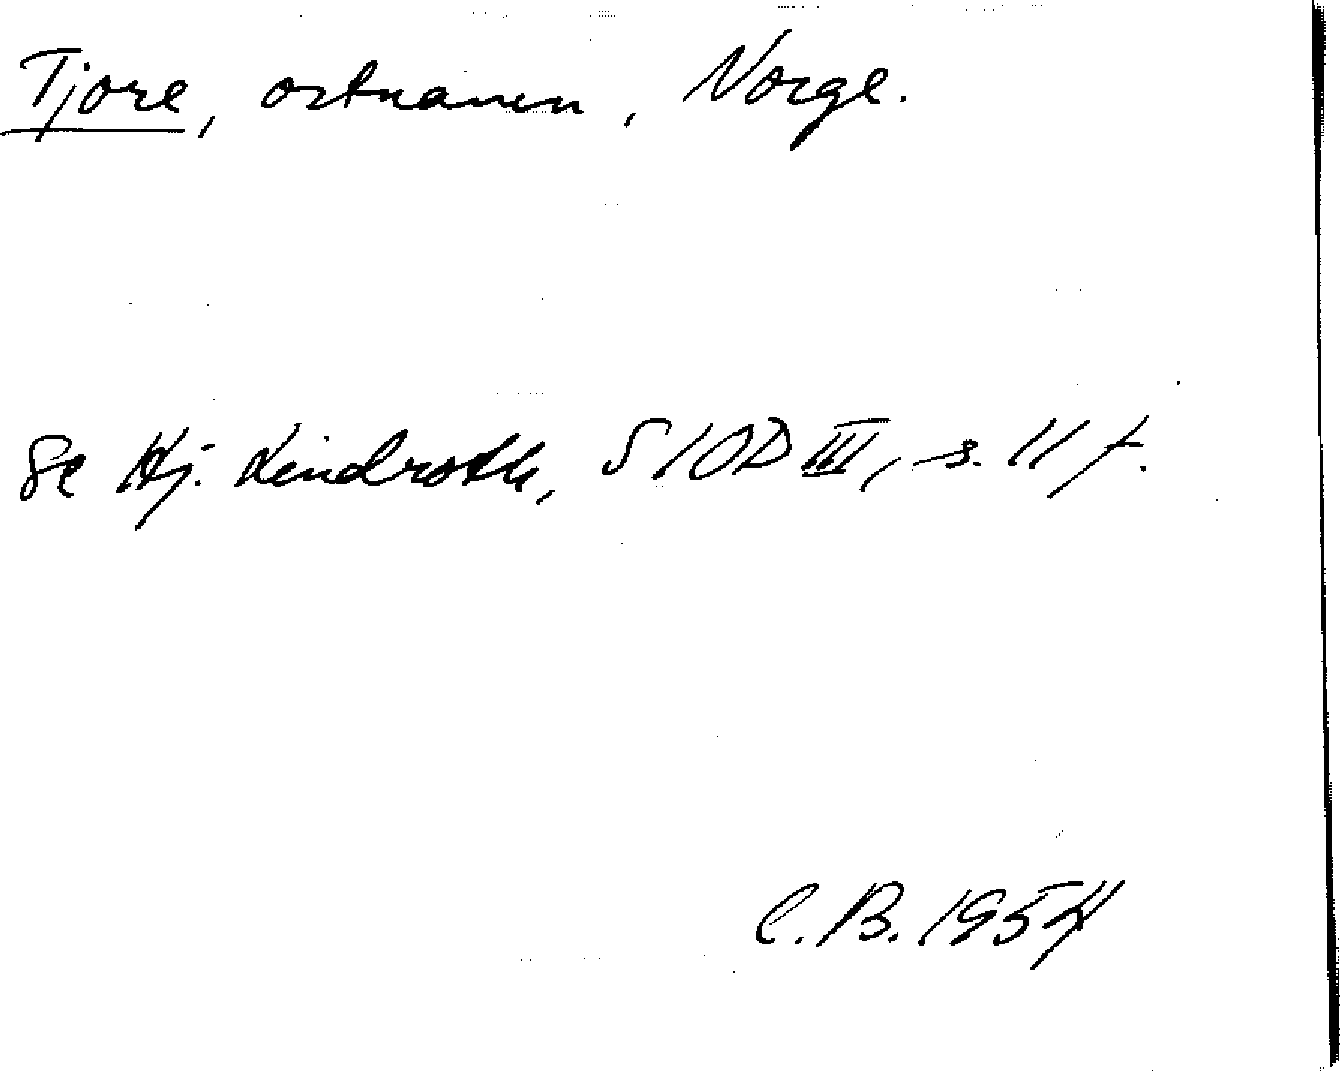 Tjore, ortnamn, Norge.
Se Hj. Lindroth, SIOD III, s. 11 f.
C.B. 1954